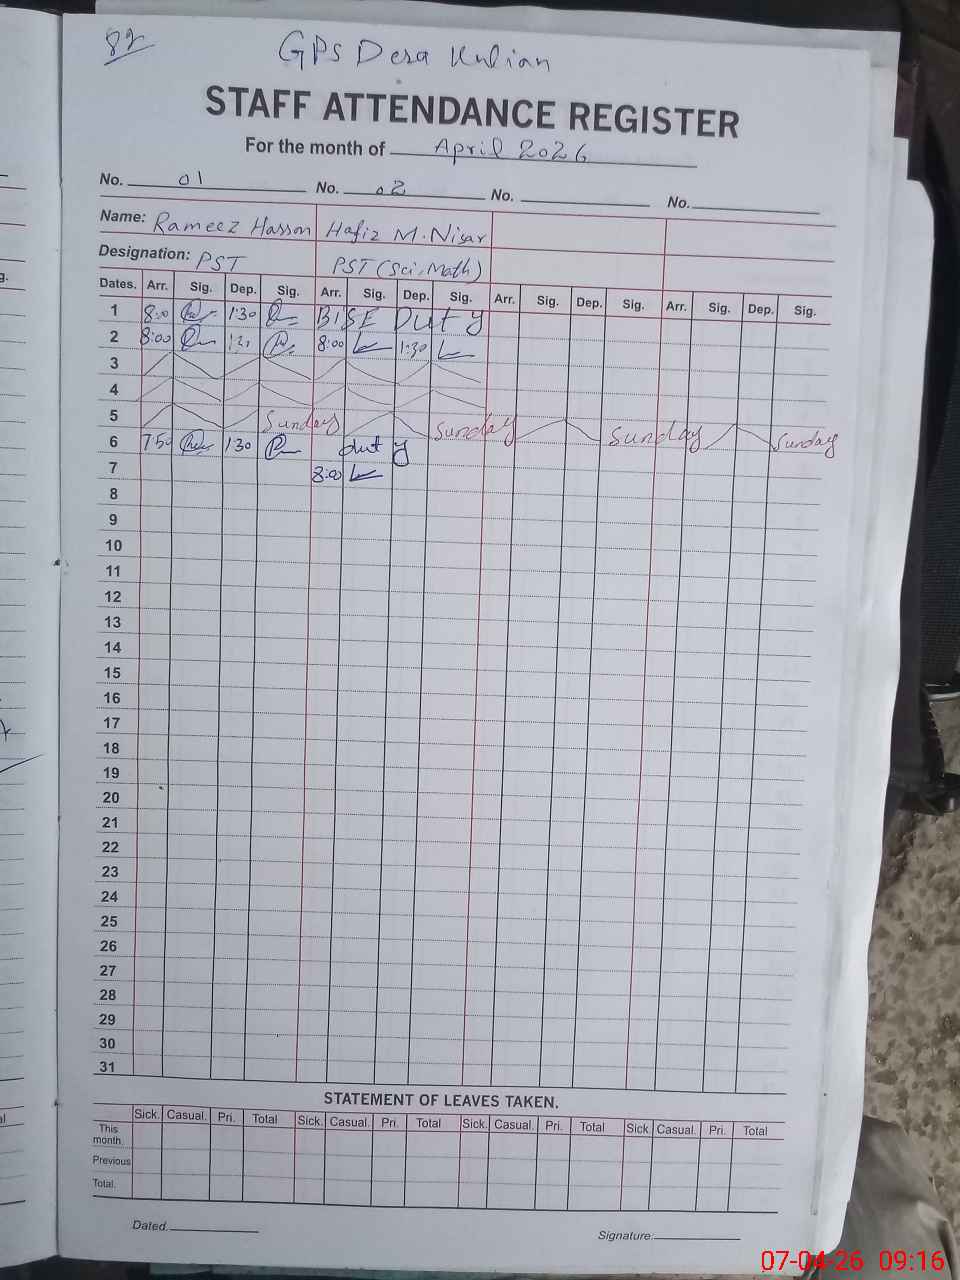 82
GPS Dera Kulian
STAFF ATTENDANCE REGISTER
For the month of April 2026
No. 01 No. 02 No. No.
Name: Rameez Hassan Hafiz M. Nisar
Designation: PST PST (Sci, Math)
Dates. Arr. Sig. Dep. Sig. Arr. Sig. Dep. Sig. Arr. Sig. Dep. Sig. Arr. Sig. Dep. Sig.
1 8:00 1:30 BISE Duty
2 8:00 8:00 1:30
3
4
5 Sunday Sunday Sunday Sunday
6 7 50 1 30 duty
7 8:00
8
9
10
11
12
13
14
15
16
17
18
19
20
21
22
23
24
25
26
27
28
29
30
31
STATEMENT OF LEAVES TAKEN.
Sick. Casual. Pri. Total Sick. Casual. Pri. Total Sick. Casual. Pri. Total Sick Casual. Pri. Total
This month.
Previous
Total.
Dated.
Signature:
07-04-26 09:16